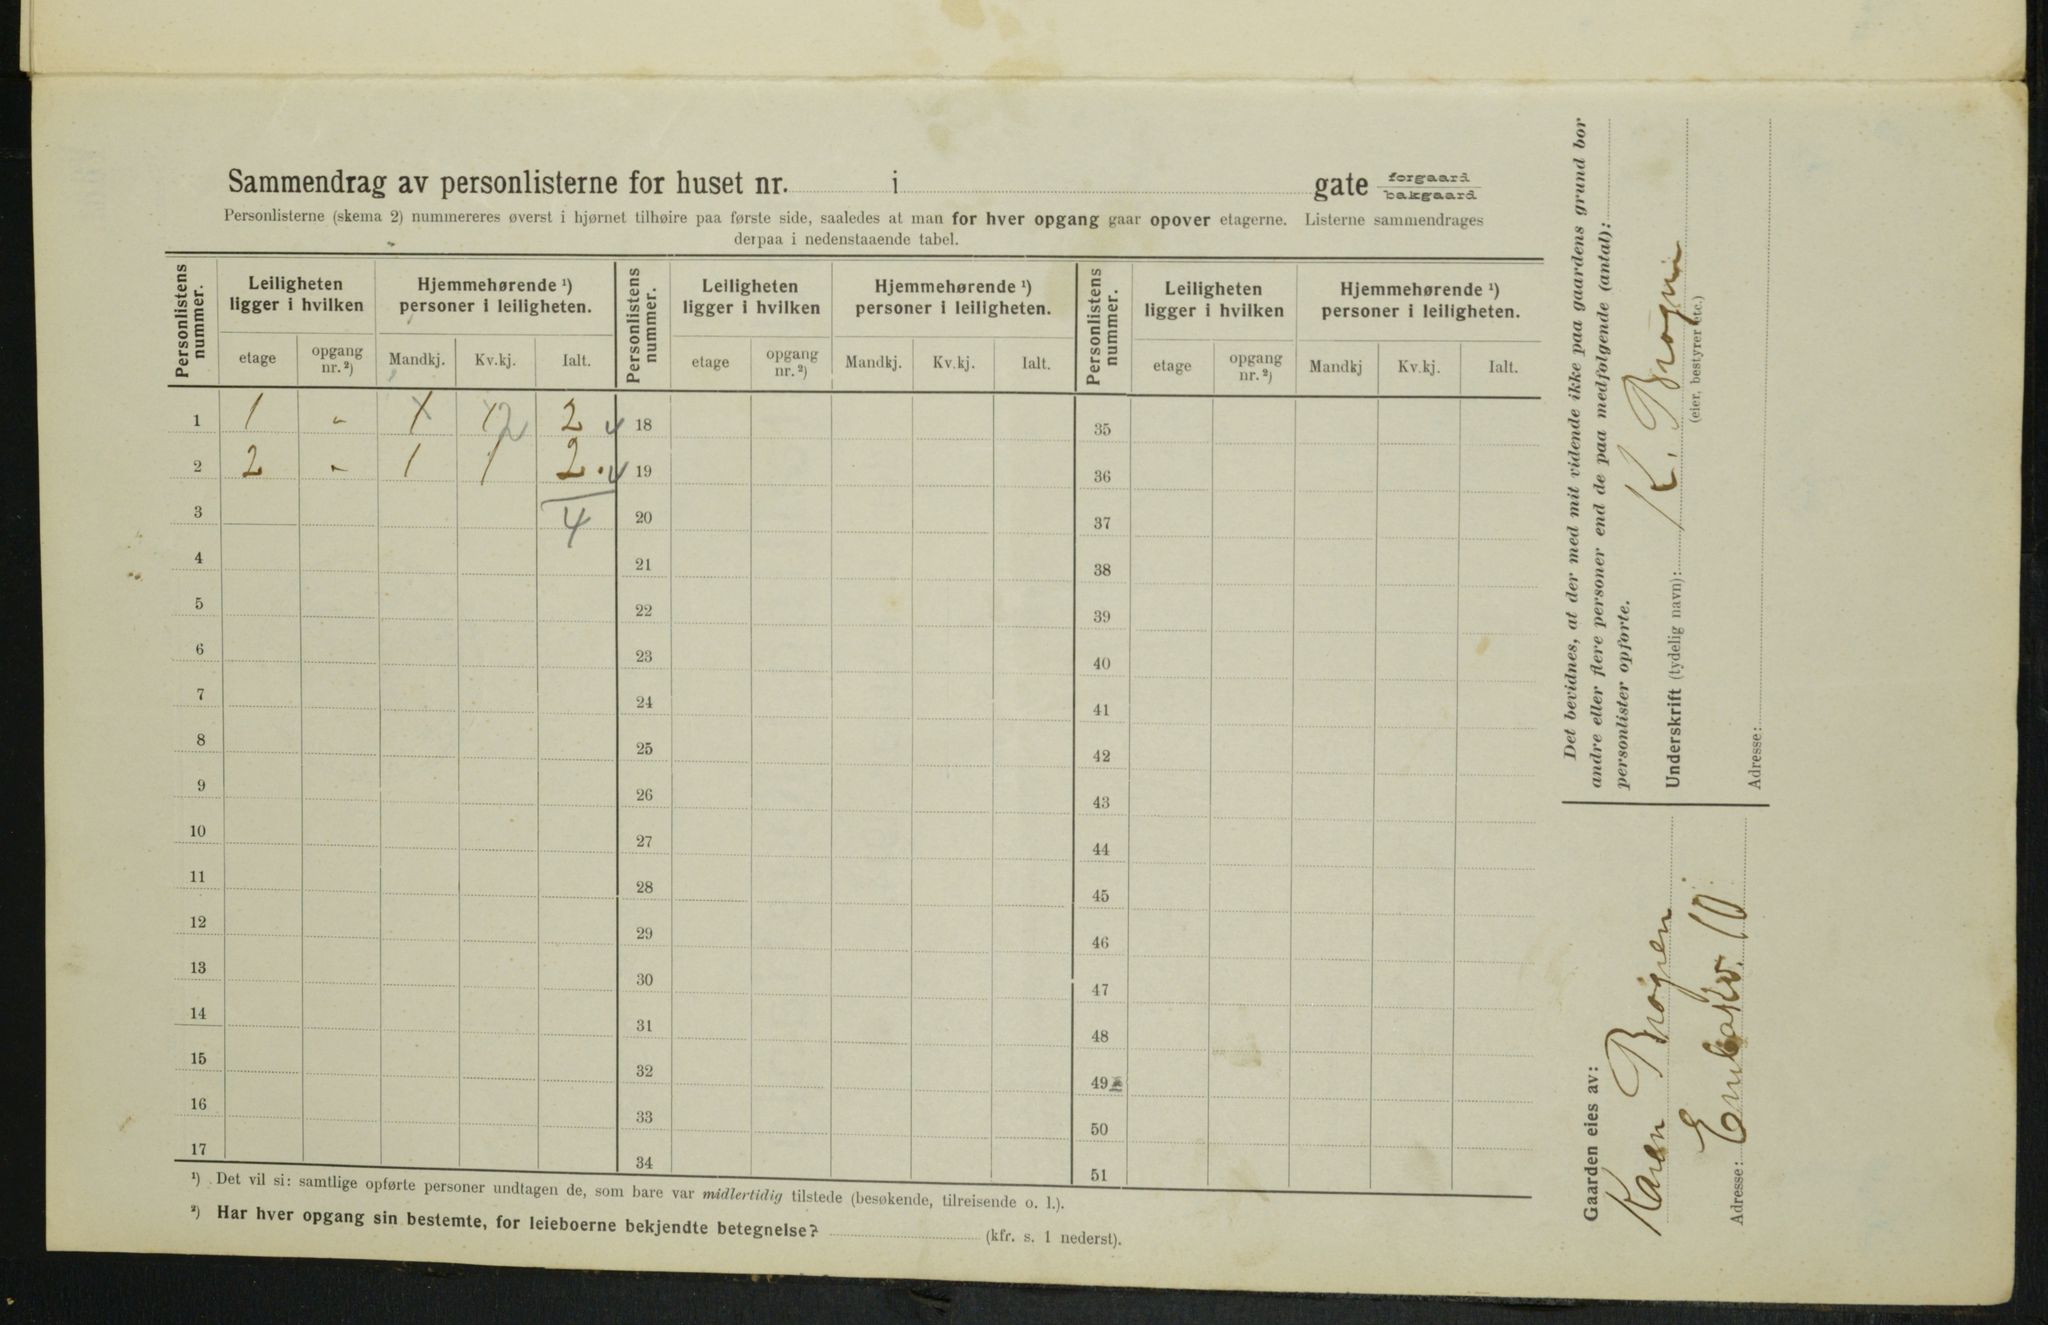 Sammendrag av personlisterne for huset nr. i gate forgaard
bakgaard
Personlisterne (skema 2) nummereres øverst i hjørnet tilhøire paa første side, saaledes at man for hver opgang gaar opover etagerne. Listerne sammendrages
derpaa i nedenstaaende tabel.
Personlistens nummer. Leiligheten ligger i hvilken Hjemmehørende ¹) personer i leiligheten. Personlistens nummer. Leiligheten ligger i hvilken Hjemmehørende ¹) personer i leiligheten. Personlistens nummer. Leiligheten ligger i hvilken Hjemmehørende ¹) personer i leiligheten.
etage opgang nr. ²) Mandkj. Kv.kj. Ialt. etage opgang nr. ²) Mandkj. Kv.kj. Ialt. etage opgang nr. ²) Mandkj Kv.kj. Ialt.
1 1 - 1 1 2 2 18 35
2 2 - 1 1 2 19 36
3 4 20 37
4 21 38
5 22 39
6 23 40
7 24 41
8 25 42
9 26 43
10 27 44
11 28 45
12 29 46
13 30 47
14 31 48
15 32 49
16 33 50
17 34 51
¹) Det vil si: samtlige opførte personer undtagen de, som bare var midlertidig tilstede (besøkende, tilreisende o. l.).
²) Har hver opgang sin bestemte, for leieboerne bekjendte betegnelse? (kfr. s. 1 nederst).
Det bevidnes, at der med mit vidende ikke paa gaardens grund bor
andre eller flere personer end de paa medfølgende (antal):
personlister opførte.
Underskrift (tydelig navn): K. Brogni
(eier, bestyrer etc.)
Adresse:
Gaarden eies av:
Karen Brøgen
Adresse: 10